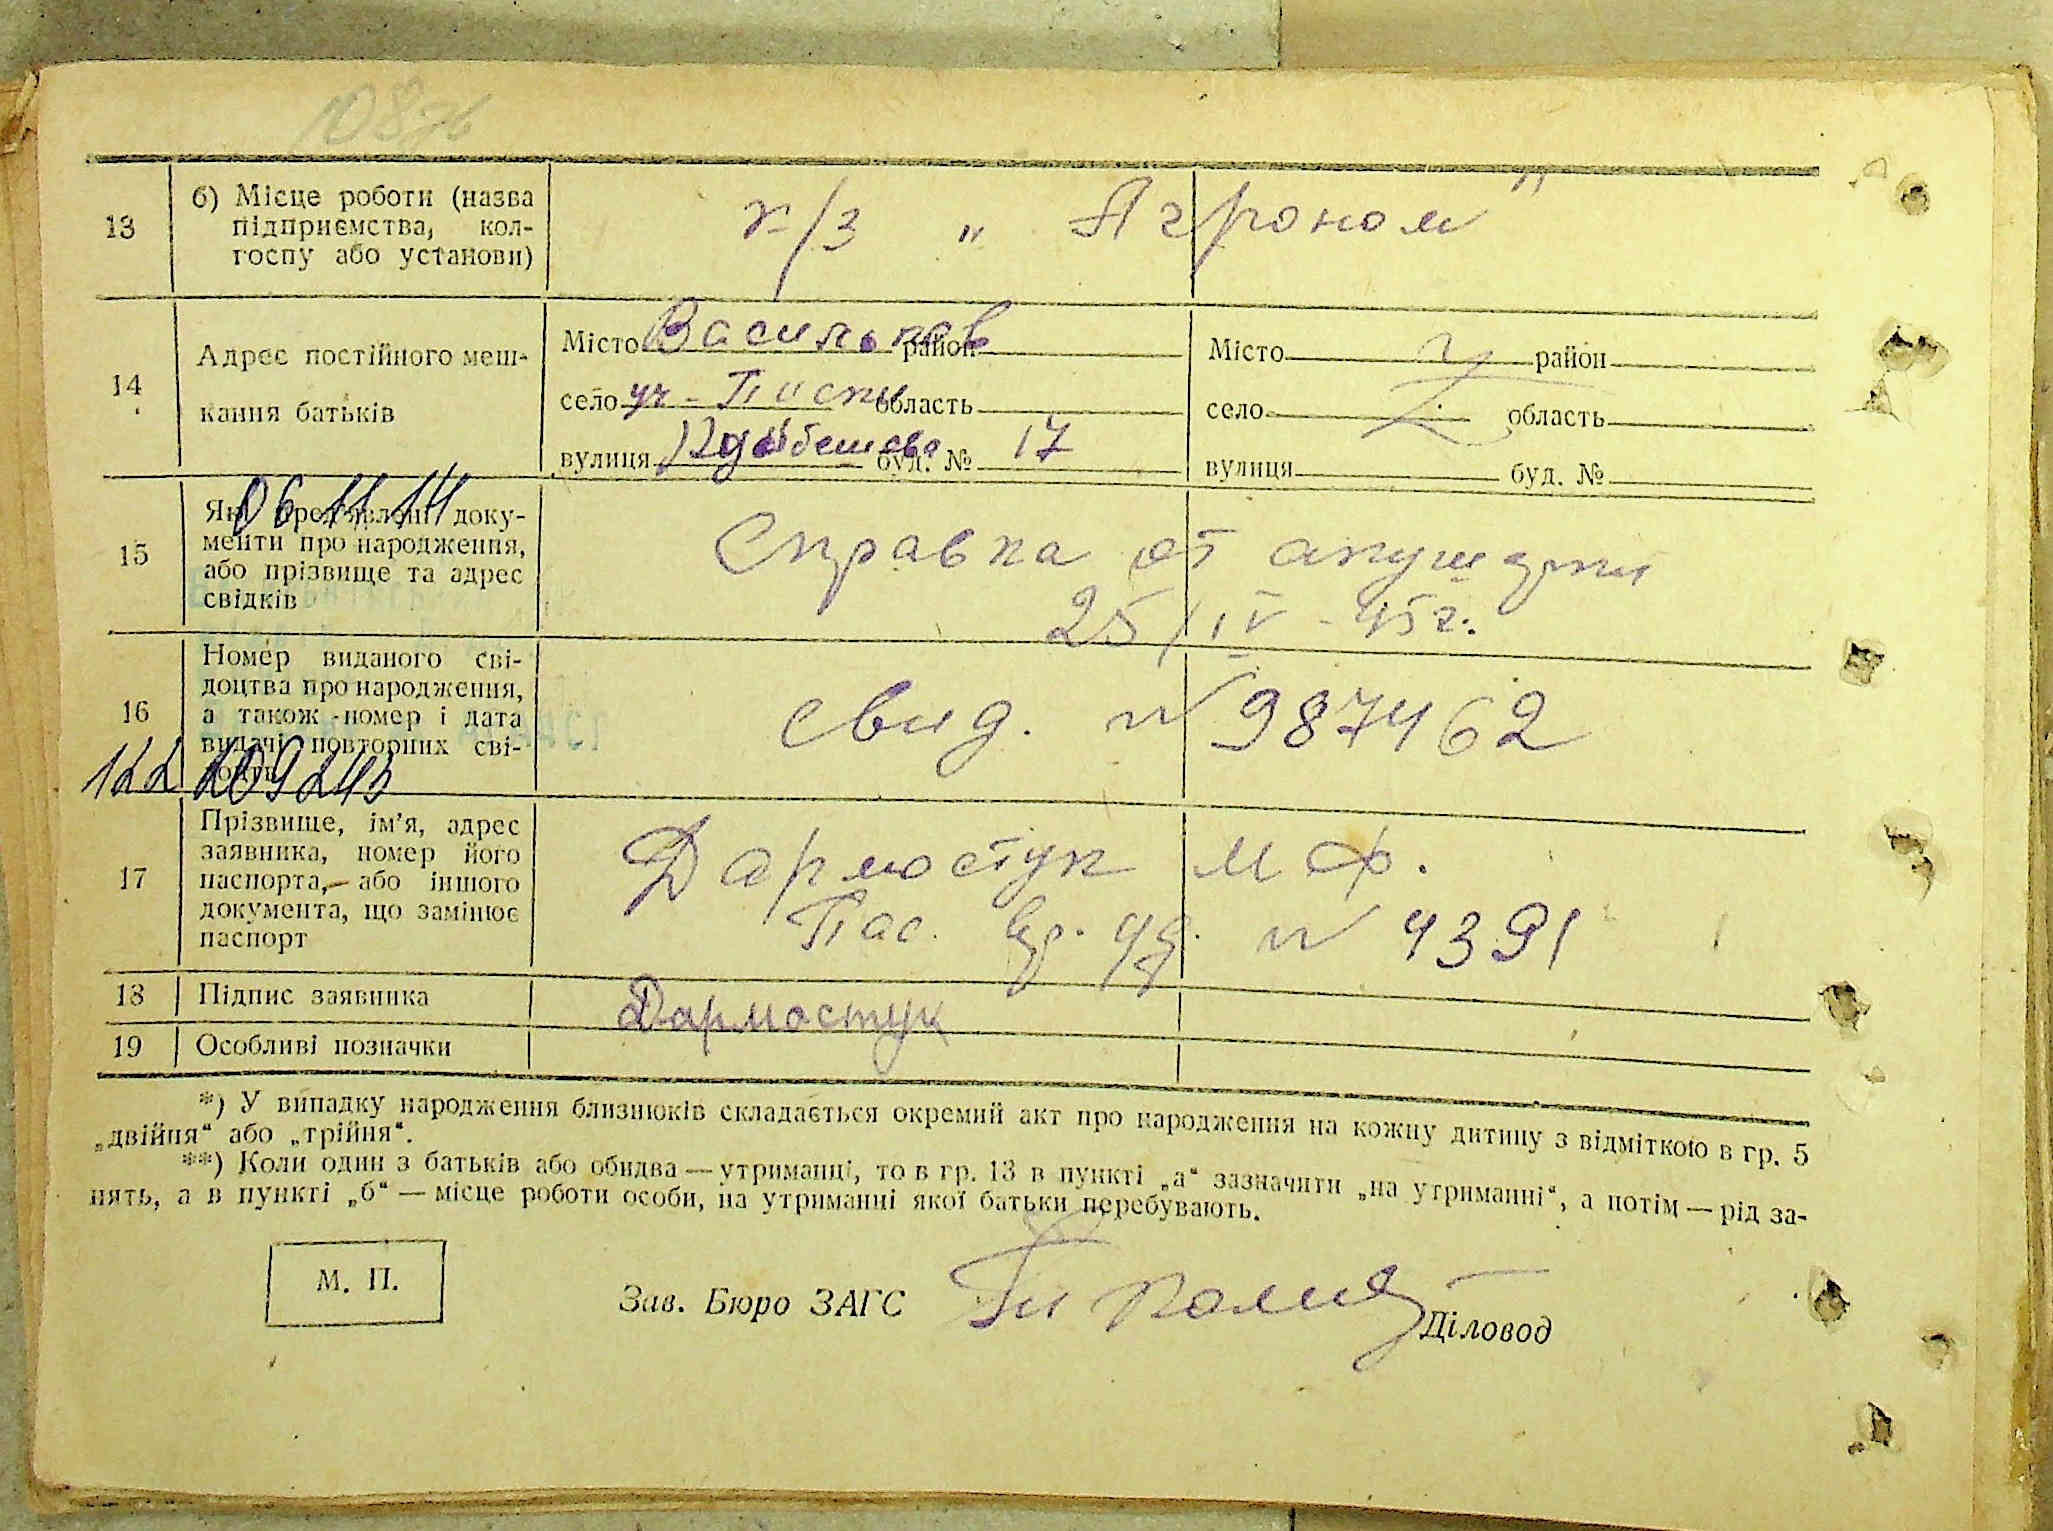 108
13
б) Місце роботи (назва
підприємства, кол-
госпу або установи)
к/з „ Агроном"
14
Адрес постійного меш-
кання батьків
Місто Васильков район
село уч-Писки область
вулиця буд. № 17
Місто район
село область
вулиця буд. №
06 11 14
15
Які пред'явлені доку-
менти про народження,
або прізвище та адрес
свідків
Справка от акушерки
25/IV - 45 г.
16
Номер виданого сві-
доцтва про народження,
а також номер і дата
видачі повторних сві-
свид. № 987462
122 109243
17
Прізвище, ім'я, адрес
заявника, номер його
паспорта,— або іншого
документа, що замінює
паспорт
Дармостук М Ф.
Пас. № 4391
18
Підпис заявника
Дармостук
19
Особливі позначки
*) У випадку народження близнюків складається окремий акт про народження на кожну дитину з відміткою в гр. 5
„двійня“ або „трійня“.
**) Коли один з батьків або обидва — утриманці, то в гр. 13 в пункті „а“ зазначити „на утриманні“, а потім — рід за-
нять, а в пункті „б“ — місце роботи особи, на утриманні якої батьки перебувають.
М. П.
Зав. Бюро ЗАГС
Діловод